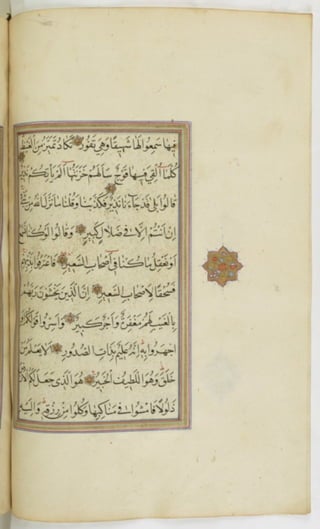 فِيهَا سَمِعُوا لَهَا شَهِيقًا وَهِيَ تَفُورُ تَكَادُ تَمَيَّزُ مِنَ الْغَيْظِ
كُلَّمَا أُلْقِيَ فِيهَا فَوْجٌ سَأَلَهُمْ خَزَنَتُهَا أَلَمْ يَأْتِكُمْ نَذِيرٌ
قَالُوا بَلَى قَدْ جَاءَنَا نَذِيرٌ فَكَذَّبْنَا وَقُلْنَا مَا نَزَّلَ اللَّهُ مِنْ شَيْءٍ
إِنْ أَنْتُمْ إِلَّا فِي ضَلَالٍ كَبِيرٍ وَقَالُوا لَوْ كُنَّا نَسْمَعُ
أَوْ نَعْقِلُ مَا كُنَّا فِي أَصْحَابِ السَّعِيرِ فَاعْتَرَفُوا بِذَنْبِهِمْ
فَسُحْقًا لِأَصْحَابِ السَّعِيرِ إِنَّ الَّذِينَ يَخْشَوْنَ رَبَّهُمْ
بِالْغَيْبِ لَهُمْ مَغْفِرَةٌ وَأَجْرٌ كَبِيرٌ وَأَسِرُّوا قَوْلَكُمْ أَوِ
اجْهَرُوا بِهِ إِنَّهُ عَلِيمٌ بِذَاتِ الصُّدُورِ أَلَا يَعْلَمُ مَنْ
خَلَقَ وَهُوَ اللَّطِيفُ الْخَبِيرُ هُوَ الَّذِي جَعَلَ لَكُمُ الْأَرْضَ
ذَلُولًا فَامْشُوا فِي مَنَاكِبِهَا وَكُلُوا مِنْ رِزْقِهِ وَإِلَيْهِ